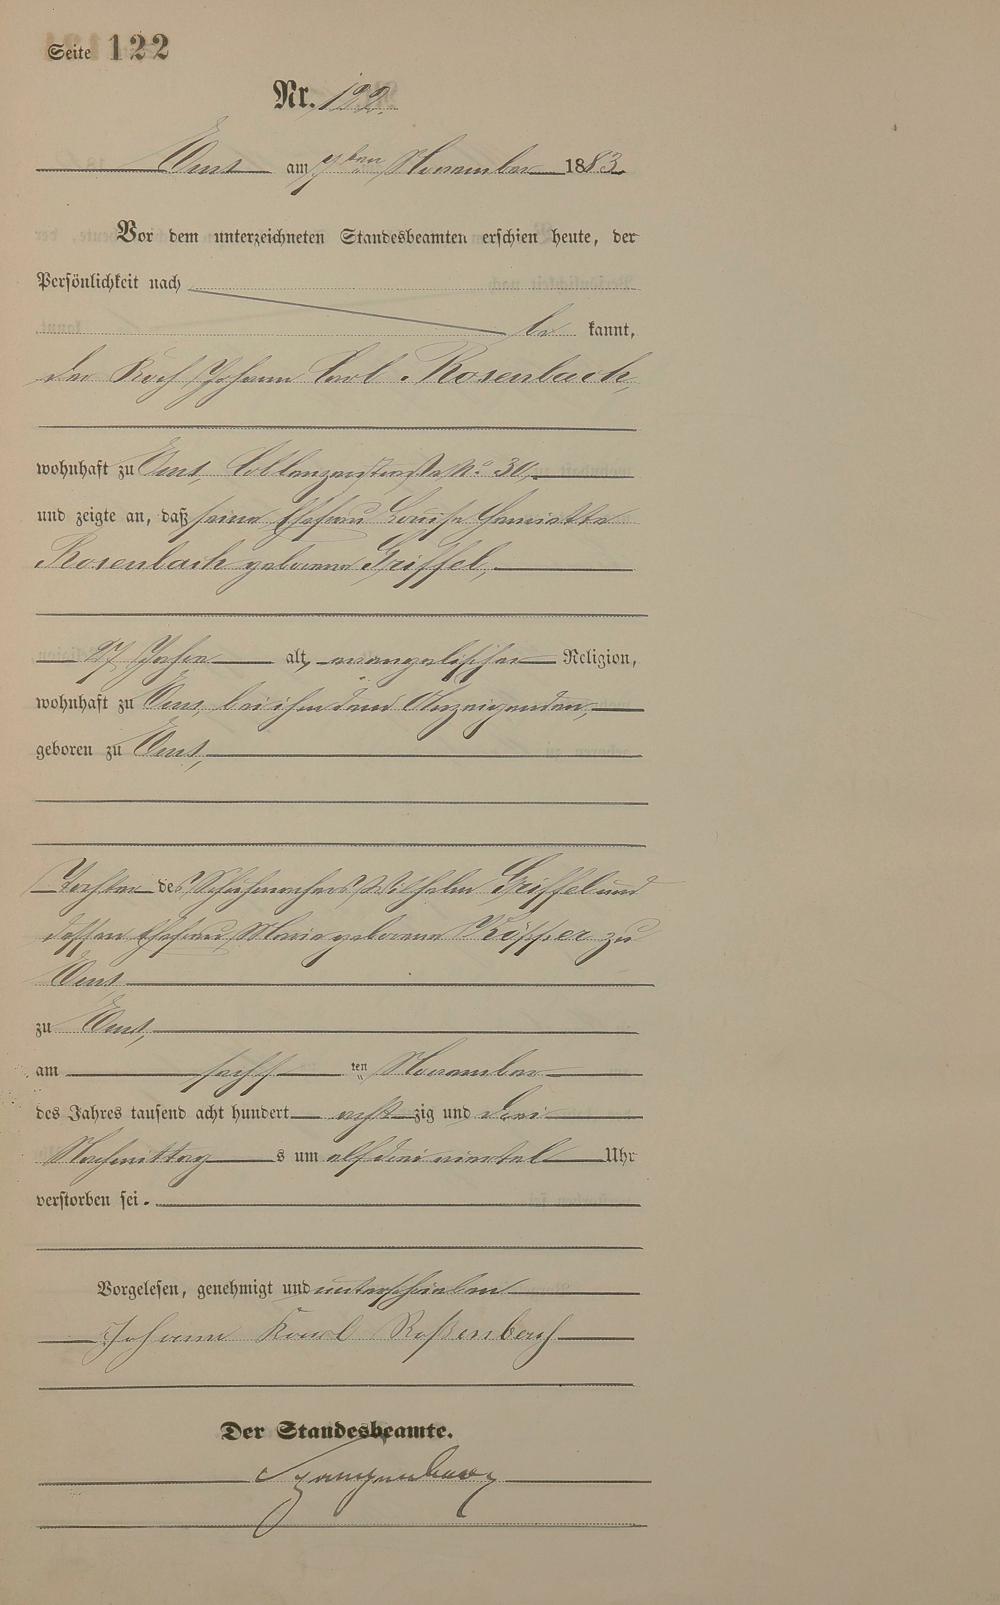 Seite 122
Nr. 122.
Ems am 7ten November 1883.
Vor dem unterzeichneten Standesbeamten erschien heute, der
Persönlichkeit nach
be kannt,
der Koch Johann Carl Rosenbach,
wohnhaft zu Ems, Coblenzerstraße No. 30,
und zeigte an, daß seine Ehefrau Louise Henriette
Rosenbach geborene Griffel,
27 Jahre alt, evangelischer Religion,
wohnhaft zu Ems, bei ihm dem Anzeigenden,
geboren zu Ems,
Tochter des Schuhmachers Wilhelm Griffel und
dessen Ehefrau Marie geborene Köpper zu
Ems
zu Ems,
am sechs ten November
des Jahres tausend acht hundert acht zig und drei
Nachmittag s um elf drei viertel Uhr
verstorben sei.
Vorgelesen, genehmigt und unterschrieben
Johann Karl Roßenbach
Der Standesbeamte.
Spangenberg